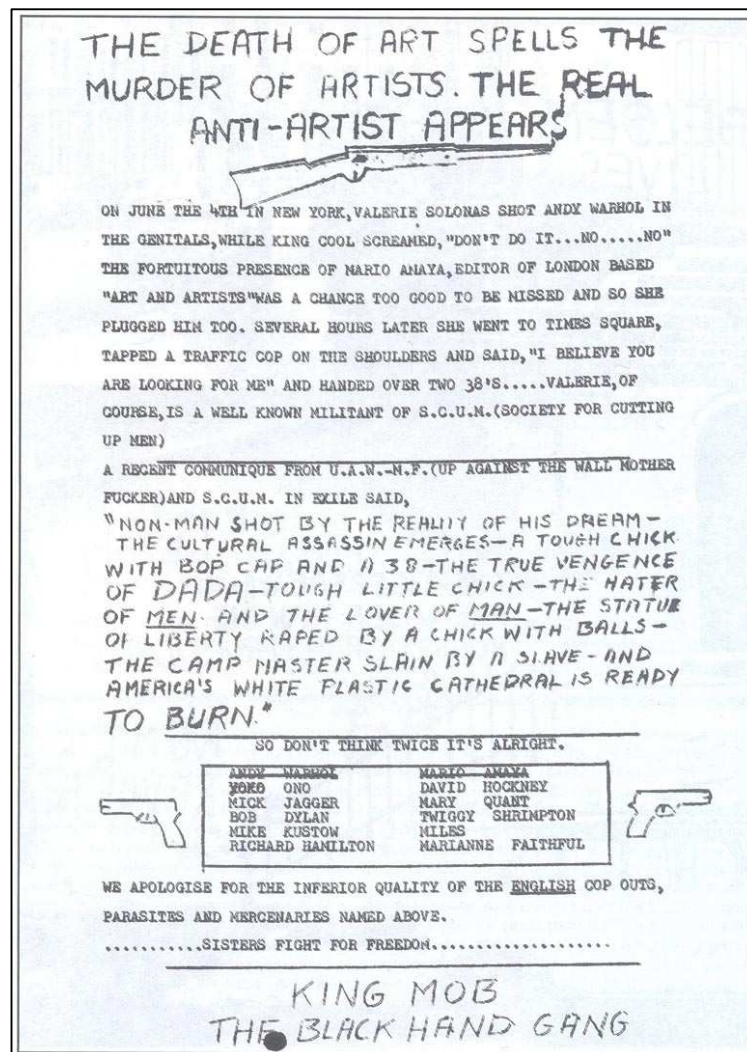 THE DEATH OF ART SPELLS THE
MURDER OF ARTISTS. THE REAL
ANTI-ARTIST APPEARS
ON JUNE THE 4TH IN NEW YORK,VALERIE SOLONAS SHOT ANDY WARHOL IN
THE GENITALS,WHILE KING COOL SCREAMED,"DON'T DO IT...NO.....NO"
THE FORTUITOUS PRESENCE OF MARIO AMAYA,EDITOR OF LONDON BASED
"ART AND ARTISTS"WAS A CHANCE TOO GOOD TO BE MISSED AND SO SHE
PLUGGED HIM TOO. SEVERAL HOURS LATER SHE WENT TO TIMES SQUARE,
TAPPED A TRAFFIC COP ON THE SHOULDERS AND SAID,"I BELIEVE YOU
ARE LOOKING FOR ME" AND HANDED OVER TWO 38'S.....VALERIE,OF
COURSE,IS A WELL KNOWN MILITANT OF S.C.U.M.(SOCIETY FOR CUTTING
UP MEN)
A RECENT COMMUNIQUE FROM U.A.W.-M.F.(UP AGAINST THE WALL MOTHER
FUCKER)AND S.C.U.M. IN EXILE SAID,
"NON-MAN SHOT BY THE REALITY OF HIS DREAM-
THE CULTURAL ASSASSIN EMERGES-A TOUGH CHICK
WITH BOP CAP AND A 38-THE TRUE VENGENCE
OF DADA-TOUGH LITTLE CHICK-THE HATER
OF MEN AND THE LOVER OF MAN-THE STATUE
OF LIBERTY RAPED BY A CHICK WITH BALLS-
THE CAMP MASTER SLAIN BY A SLAVE-AND
AMERICA'S WHITE PLASTIC CATHEDRAL IS READY
TO BURN."
SO DON'T THINK TWICE IT'S ALRIGHT.
ANDY WARHOL MARIO AMAYA
YOKO ONO DAVID HOCKNEY
MICK JAGGER MARY QUANT
BOB DYLAN TWIGGY SHRIMPTON
MIKE KUSTOW MILES
RICHARD HAMILTON MARIANNE FAITHFUL
WE APOLOGISE FOR THE INFERIOR QUALITY OF THE ENGLISH COP OUTS,
PARASITES AND MERCENARIES NAMED ABOVE.
............SISTERS FIGHT FOR FREEDOM...................
KING MOB
THE BLACK HAND GANG